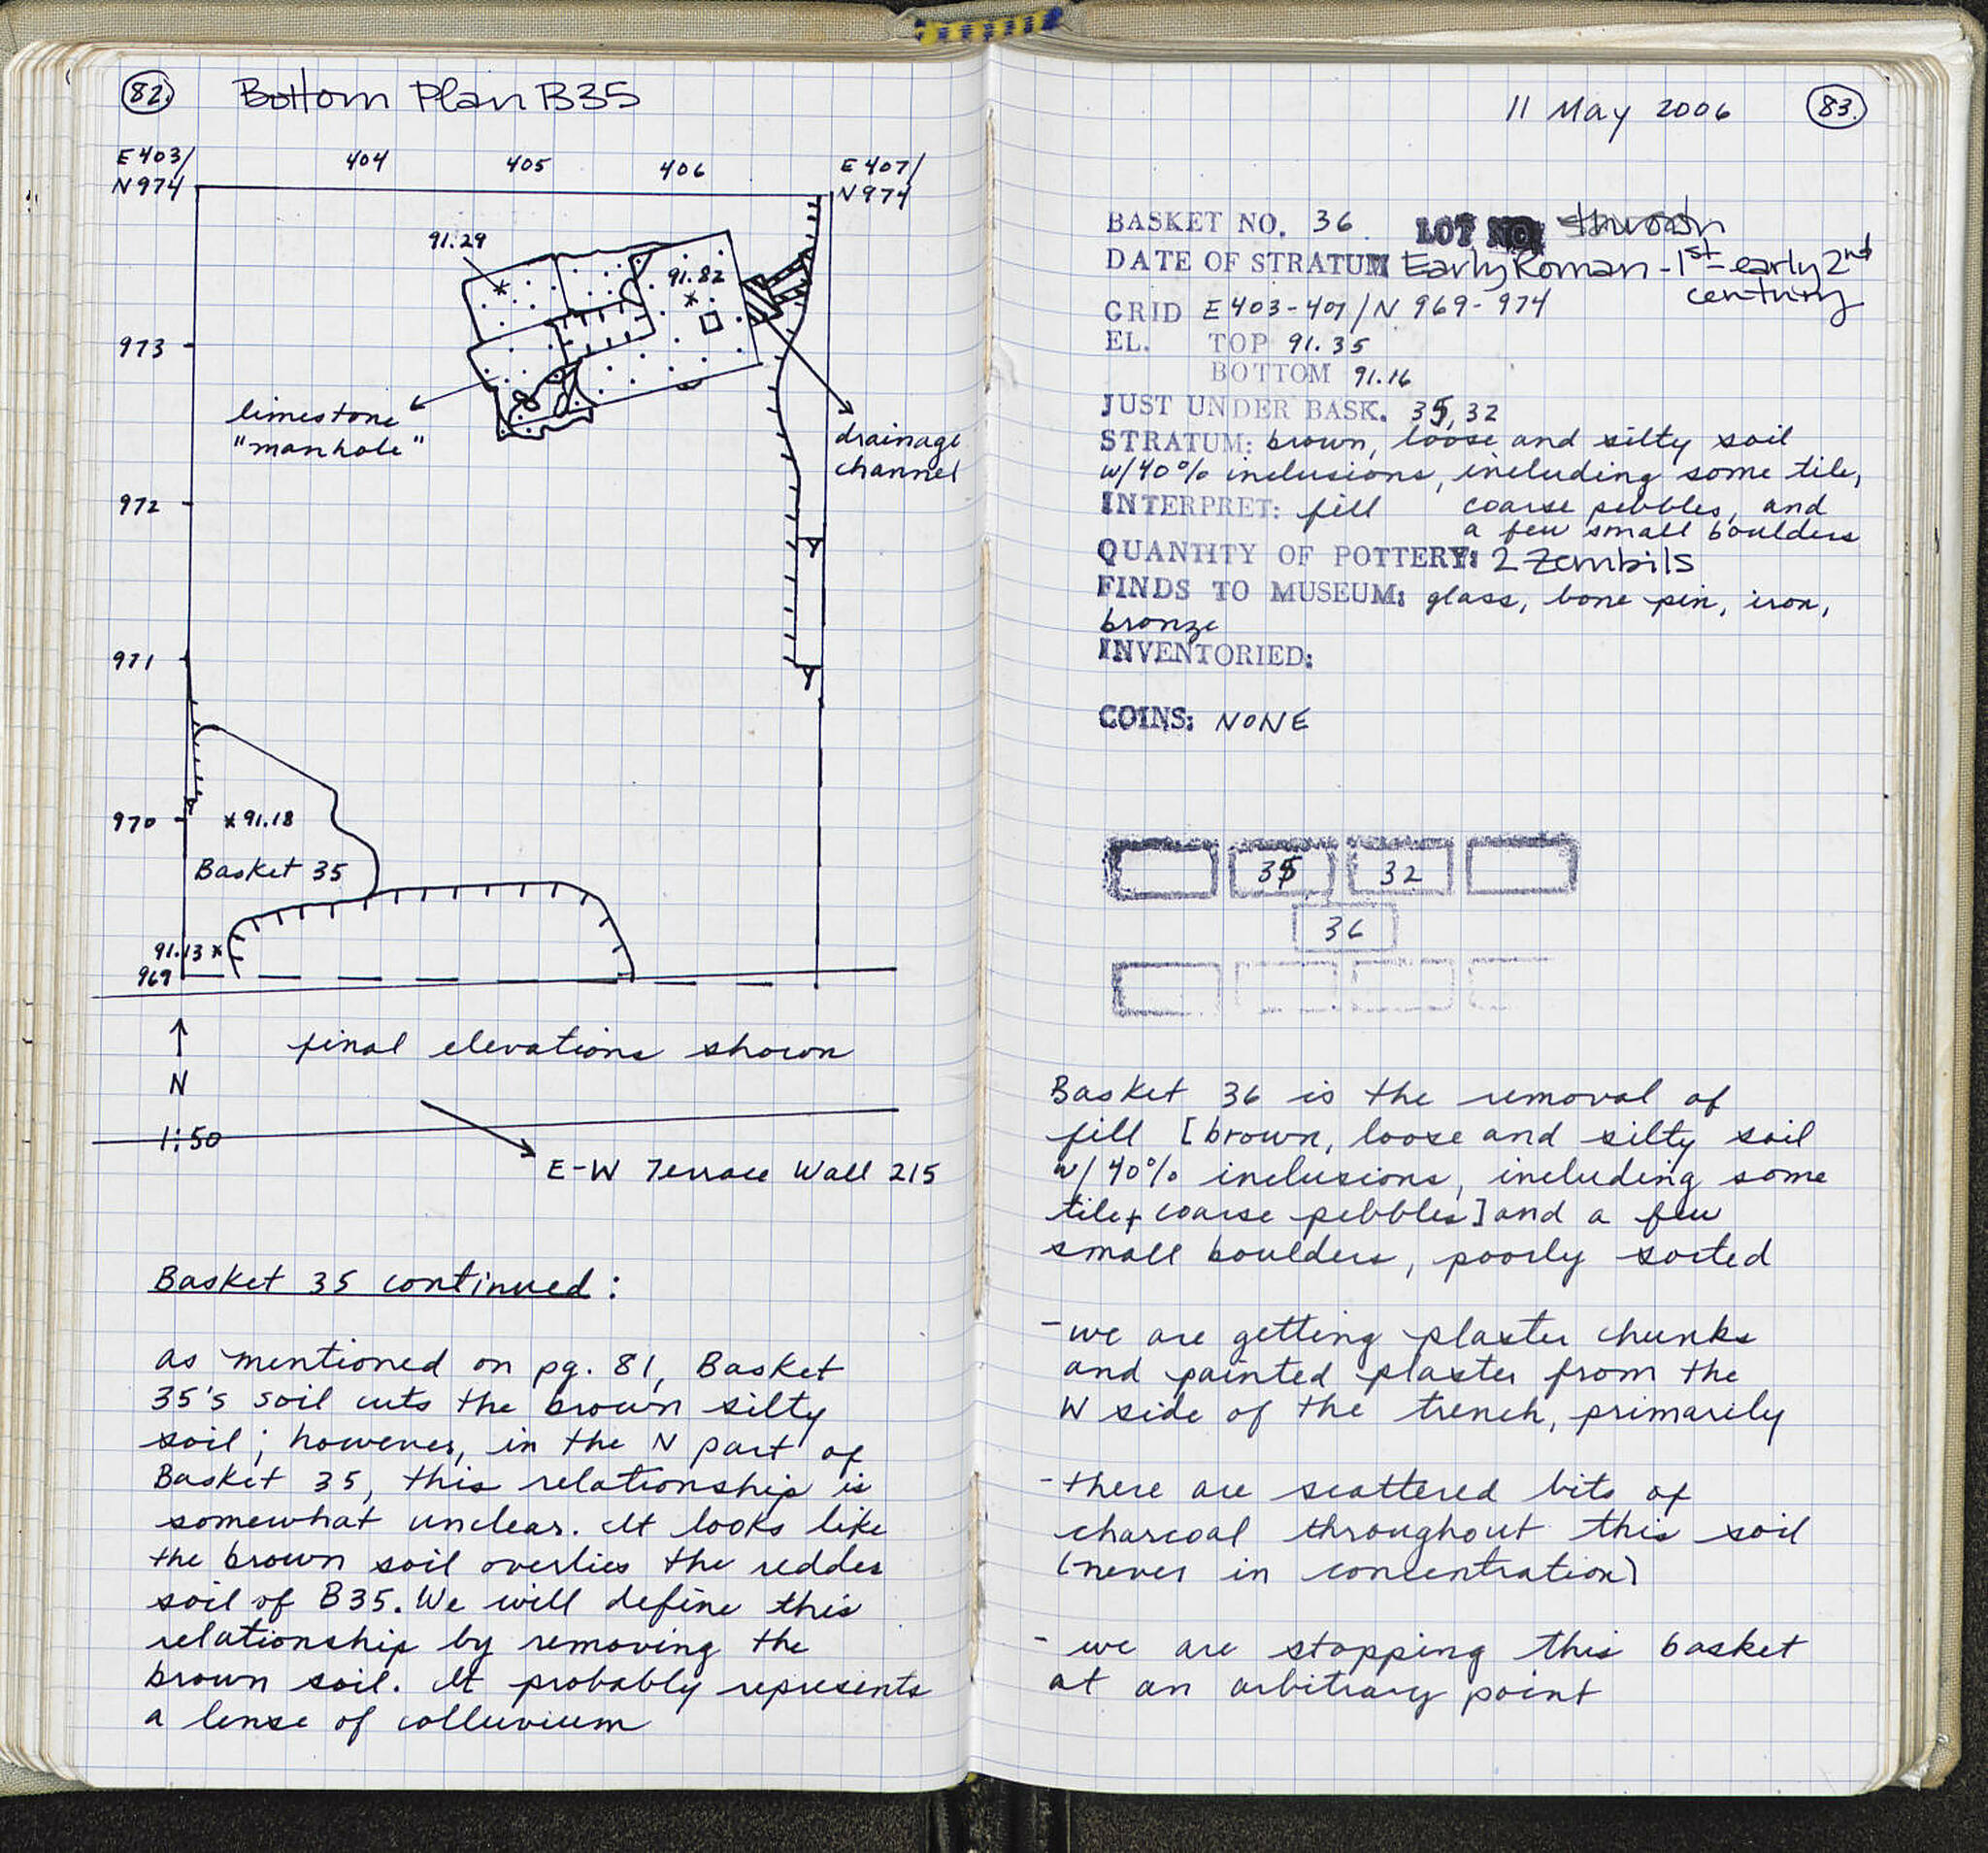 82.
Bottom Plan B35
E 403/
N 974
404
405
406
E 407/
N 974
91.29
91.82
973
limestone
"manhole"
drainage
channel
972
971
970
*91.18
Basket 35
91.13 *
969
↑
N
1:50
final elevations shown
E-W Terrace Wall 215
Basket 35 continued:
as mentioned on pg. 81, Basket
35's soil cuts the brown silty
soil; however, in the N part of
Basket 35, this relationship is
somewhat unclear. It looks like
the brown soil overlies the redder
soil of B35. We will define this
relationship by removing the
brown soil. It probably represents
a lense of colluvium
11 May 2006
83.
BASKET NO. 36 LOT NO.
DATE OF STRATUM Early Roman - 1st - early 2nd
century
GRID E 403-407 / N 969-974
EL. TOP 91.35
BOTTOM 91.16
JUST UNDER BASK. 35, 32
STRATUM: brown, loose and silty soil
w/40% inclusions, including some tile,
INTERPRET: fill coarse pebbles, and
a few small boulders
QUANTITY OF POTTERY: 2 Zembils
FINDS TO MUSEUM: glass, bone pin, iron,
bronze
INVENTORIED:
COINS: NONE
35 32
36
Basket 36 is the removal of
fill [brown, loose and silty soil
w/40% inclusions, including some
tile + coarse pebbles] and a few
small boulders, poorly sorted
- we are getting plaster chunks
and painted plaster from the
W side of the trench, primarily
- there are scattered bits of
charcoal throughout this soil
(never in concentration)
- we are stopping this basket
at an arbitrary point